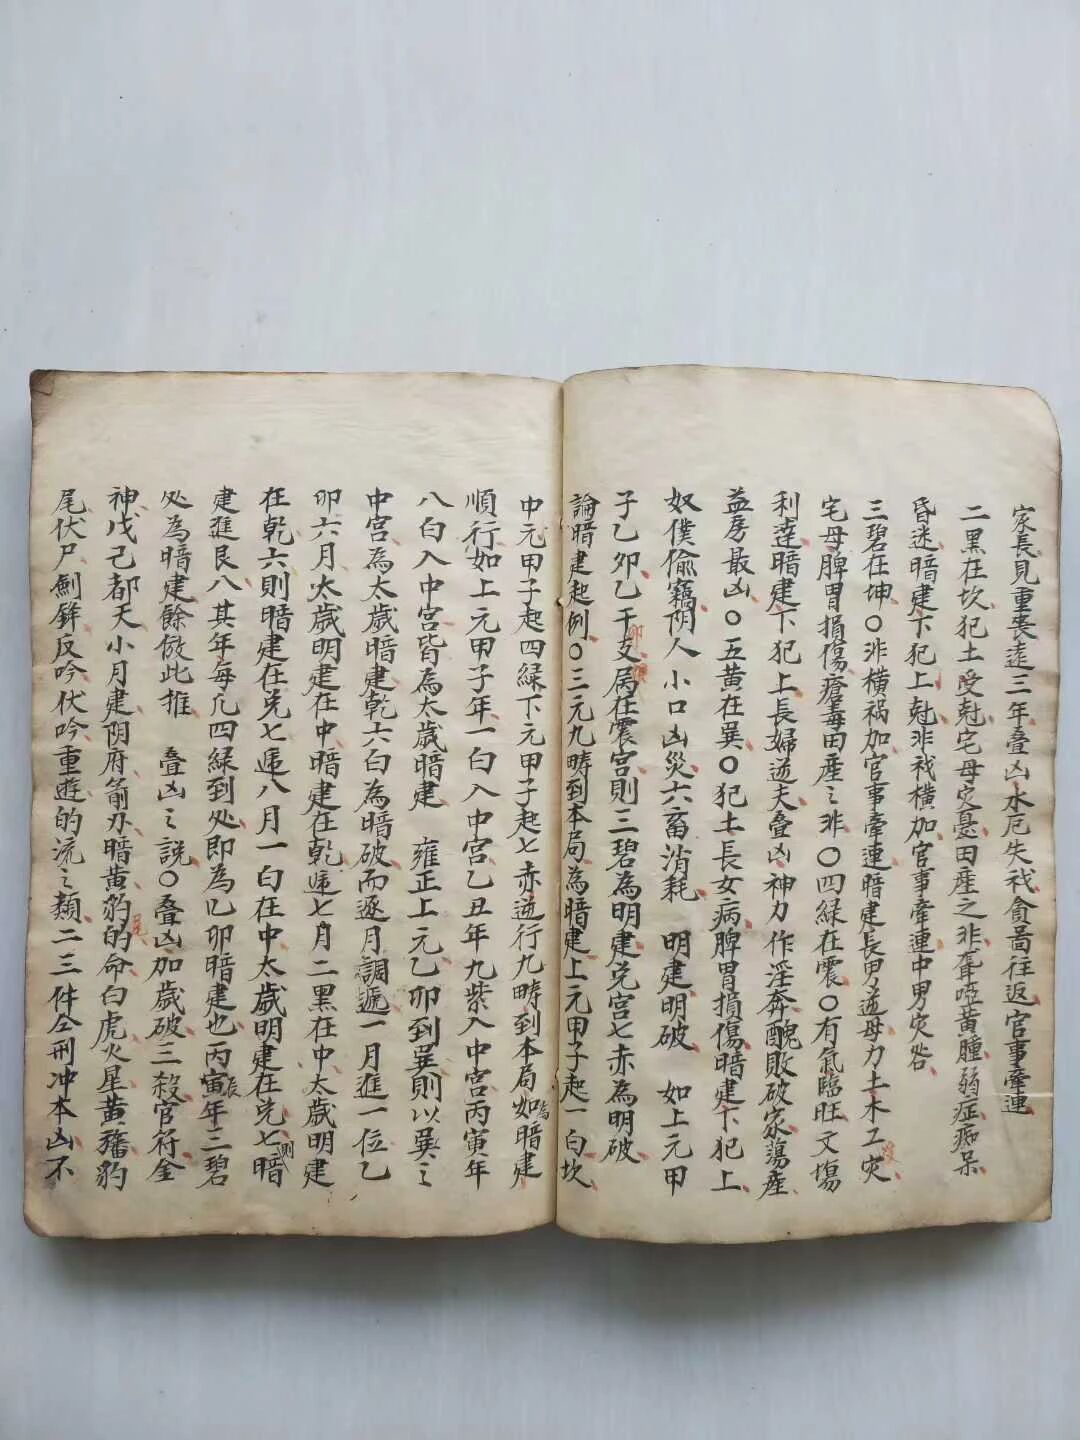 家長見重喪遠三年叠凶水厄失戝貪啚往返官事牽連
二黑在坎犯土受尅宅母灾憂田產之非聋啞黃腫弱症痴呆
昏迷暗建下犯上尅非戝橫加官事牽連中男灾咎
三碧在坤〇非橫禍加官事牽連暗建長男逆母力土木工灾
宅母脾胃損傷瘡毒田產之非〇四緑在震〇有氣臨旺文塲
利達暗建下犯上長婦逆夫叠凶神力作淫奔醜敗破家蕩產
益房最凶〇五黃在巽〇犯土長女病脾胃損傷暗建下犯上
奴僕偷竊阴人小口凶災六畜消耗 明建明破 如上元甲
子乙卯乙干支局在震宮則三碧為明建兑宮七赤為明破
論暗建起例〇三元九疇到本局為暗建上元甲子起一白坎
中元甲子起四緑下元甲子起七赤逆行九疇到本局為如暗建
順行如上元甲子年一白入中宮乙丑年九紫入中宮丙寅年
八白入中宮皆為太歲暗建 雍正上元乙卯到巽則以巽之
中宮為太歲暗建乾六白為暗破而逐月調遞一月進一位乙
卯六月太歲明建在中暗建在乾遁七月二黑在中太歲明建
在乾六則暗建在兑七遁八月一白在中太歲明建在兑七則暗
建進艮八其年每凢四緑到处即為乙卯暗建也丙寅辰年三碧
处為暗建餘倣此推 叠凶之説〇叠凶加歲破三殺官符金
神戊己都天小月建阴府箭刃暗黄豹的命白虎火星黄旛豹
尾伏尸劍鋒反吟伏吟重遊的流之類二三件仝刑冲本凶不
卯
尾